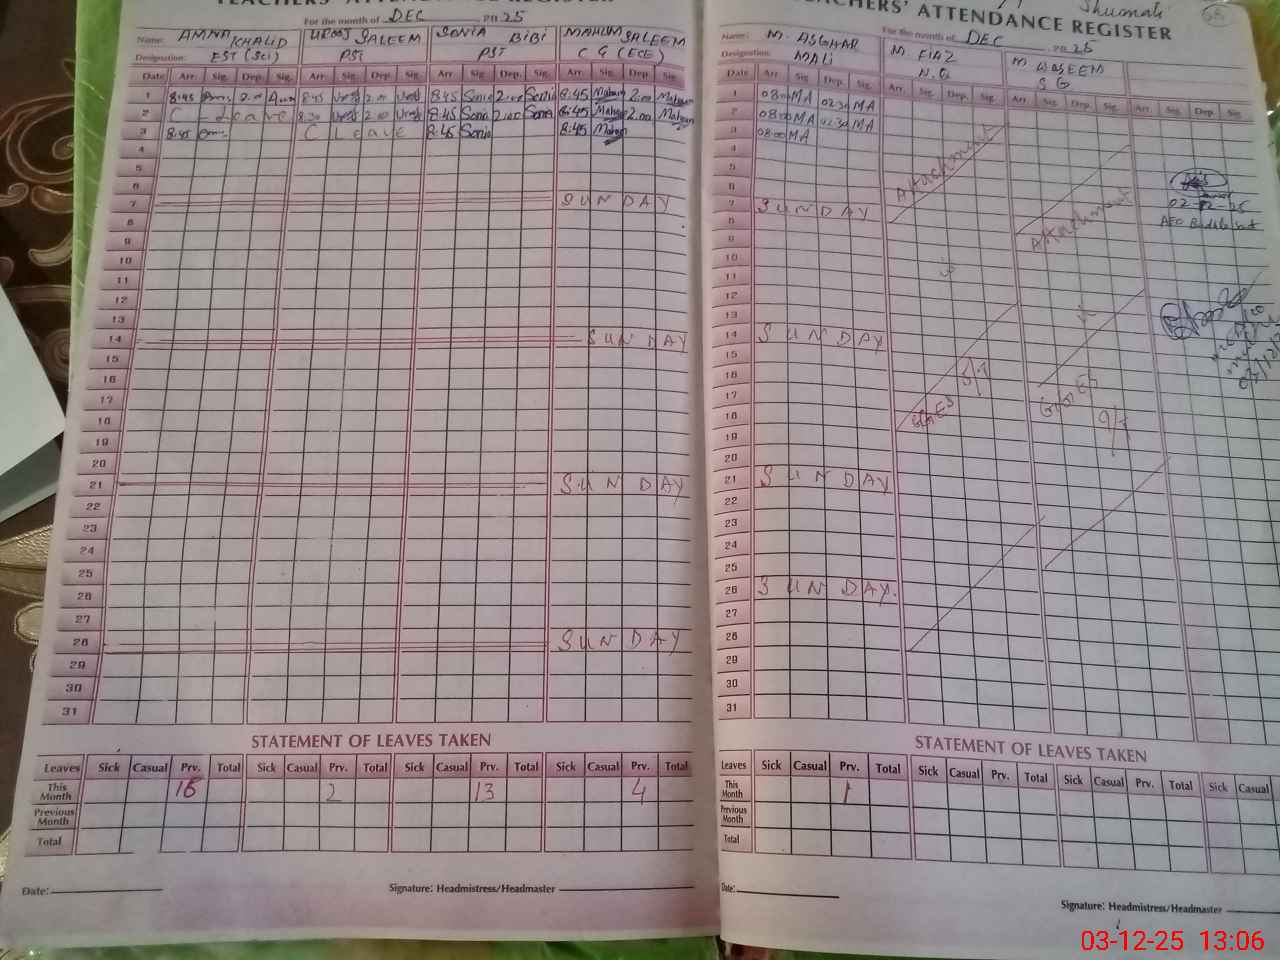 TEACHERS' ATTENDANCE REGISTER
For the month of DEC 2025
Name: AMNA KHALID UROOJ SALEEM SONIA BIBI MAHUM SALEEM
Designation: EST (Sci) PST PST C G (ECE)
Date Arr. Sig. Dep. Sig. Arr. Sig. Dep. Sig. Arr. Sig. Dep. Sig. Arr. Sig. Dep. Sig.
1 8:45 2.00 8:45 Urooj 2.00 Urooj 8:45 Sonia 2.00 Sonia 8:45 Mahum 2.00 Mahum
2 C - Leave 8:30 Urooj 2.00 Urooj 8:45 Sonia 2.00 Sonia 8:45 Mahum 2.00 Mahum
3 8:45 C Leave 8:45 Sonia 8:45 Mahum
4
5
6
7 SUNDAY
8
9
10
11
12
13
14 SUNDAY
15
16
17
18
19
20
21 SUNDAY
22
23
24
25
26
27
28 SUNDAY
29
30
31
STATEMENT OF LEAVES TAKEN
Leaves Sick Casual Prv. Total Sick Casual Prv. Total Sick Casual Prv. Total Sick Casual Prv. Total
This Month 16 2 13 4
Previous Month
Total
Date: Signature: Headmistress/Headmaster
Shumali
68
TEACHERS' ATTENDANCE REGISTER
For the month of DEC 2025
Name: M. ASGHAR M. FIAZ M WASEEM
Designation: MALI N.Q S G
Date Arr. Sig. Dep. Sig. Arr. Sig. Dep. Sig. Arr. Sig. Dep. Sig. Arr. Sig. Dep. Sig.
1 08:00 MA 02:30 MA
2 08:00 MA 02:30 MA
3 08:00 MA
4
5
6
7 SUNDAY
8
9
10
11
12
13
14 SUNDAY
15
16
17
18
19
20
21 SUNDAY
22
23
24
25
26 SUNDAY.
27
28
29
30
31
Attachment
Attachment
GGES
GGES
02-12-25
AEO
STATEMENT OF LEAVES TAKEN
Leaves Sick Casual Prv. Total Sick Casual Prv. Total Sick Casual Prv. Total Sick Casual
This Month 1
Previous Month
Total
Date:
Signature: Headmistress/Headmaster
03-12-25 13:06